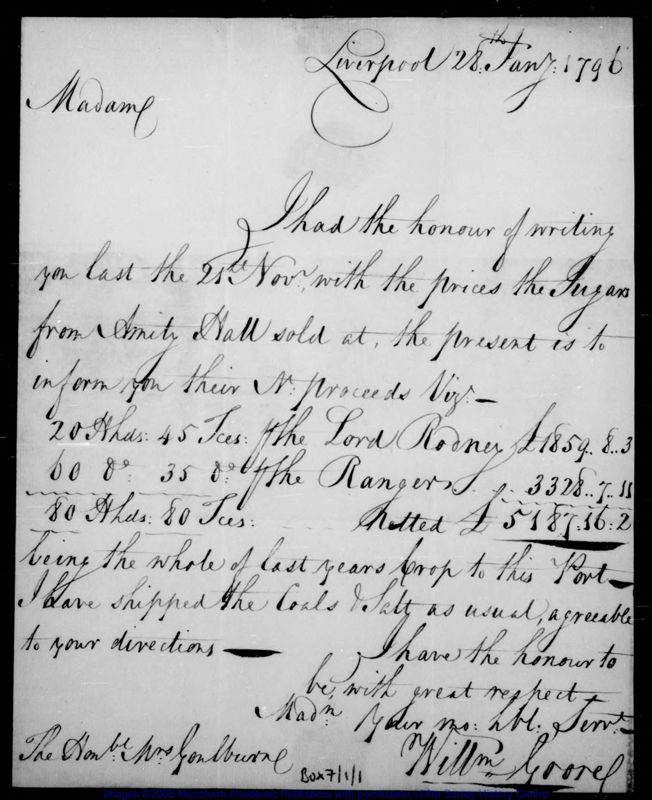 Liverpool 28.th Jany: 1796
Madam
I had the honour of writing
you last the 21st Novr. with the prices the Sugars
from Amity Hall sold at, the present is to
inform you their Nt. proceeds Vizt.—
20 Hhds: 45 Tces: ⅌ the Lord Rodney £1859..8..3
60 do. 35 do. ⅌ the Ranger . . 3328..7..11
80 Hhds: 80 Tces: Netted £ 5187:16:2
being the whole of last years Crop to this Port—
I have shipped the Coals & Salt, as usual, agreeable
to your directions —
I have the honour to
be, with great respect
Madm. Your mo: hble. Servt.
Willm Goore
The Honble. Mrs Goulburn
Box 7/1/1
images ©2008 Microform Academic Publishers with permission of the Surrey History Centre